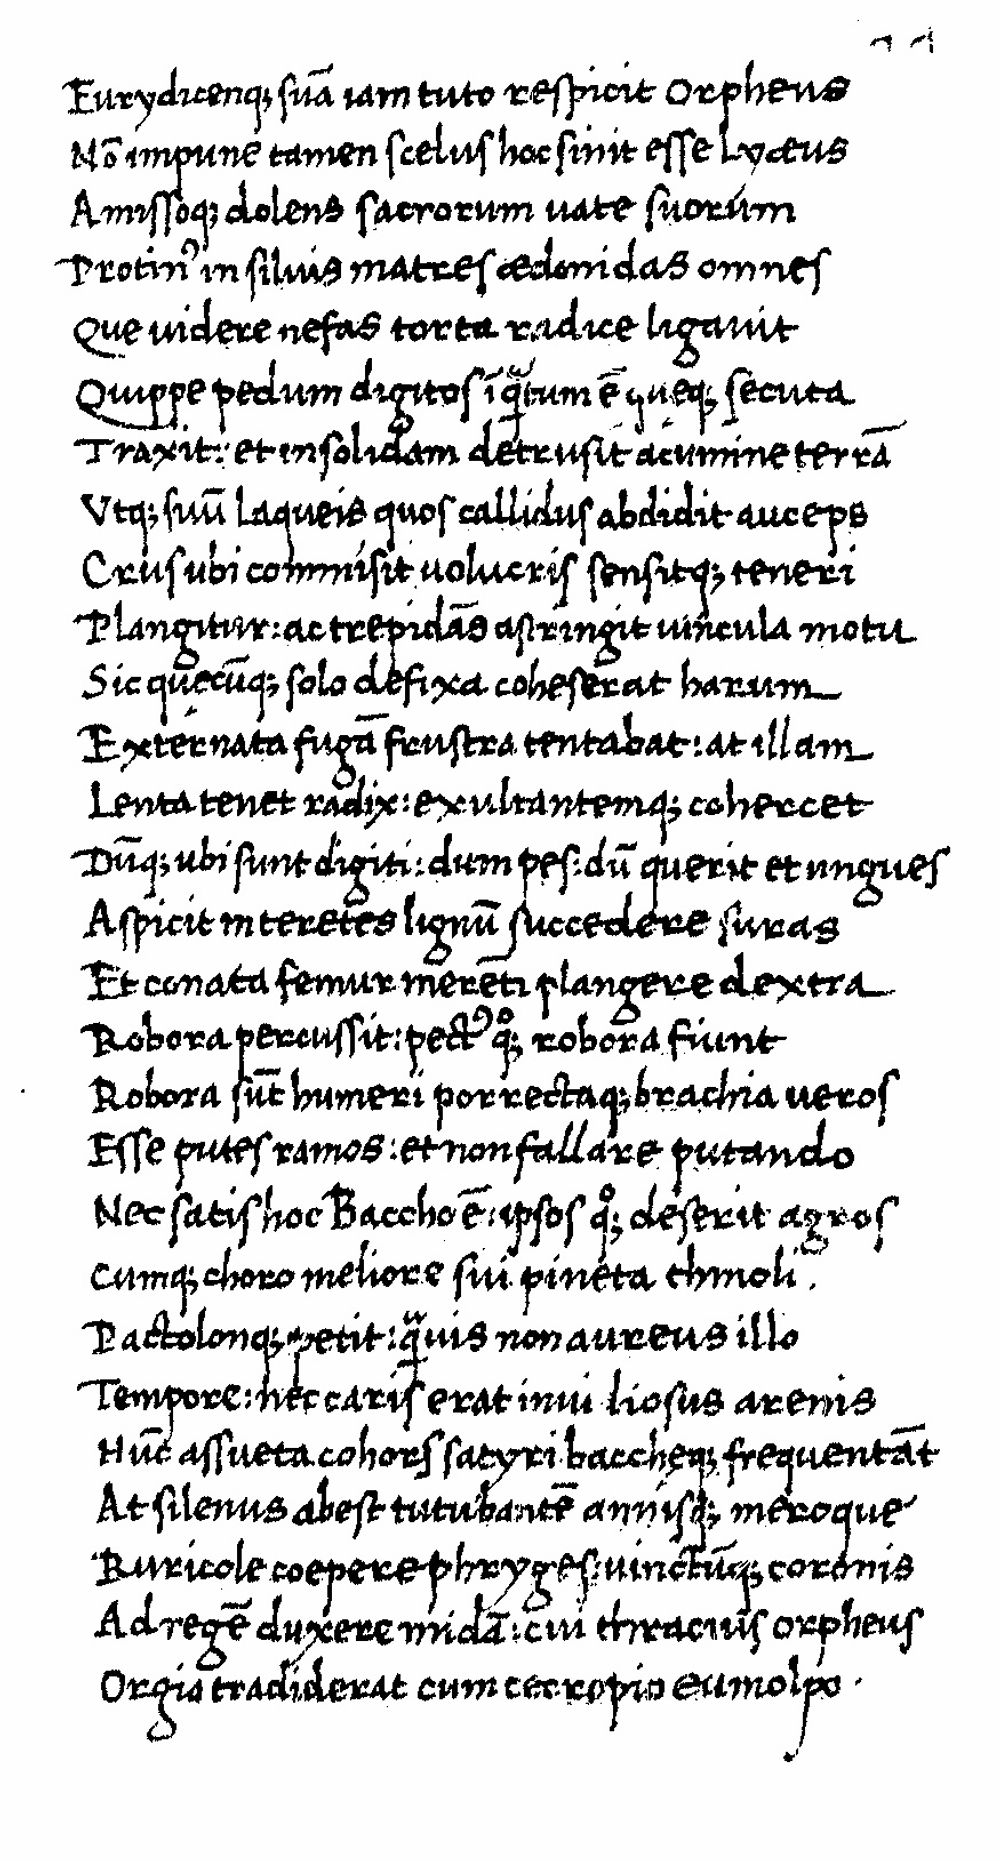 Eurydicenq; suā iam tuto respicit Orpheus
Nō impune tamen scelus hoc sinit esse Lyæus
Amissoq; dolens sacrorum uate suorum
Protinꝰ in siluis matres ædonidas omnes
Que uidere nefas torta radice ligauit
Quippe pedum digitos ī qᷓtum ē queq; secuta
Traxit: et in solidam detrusit acumine terrā
Vtq; suū laqueis quos callidus abdidit auceps
Crus ubi commisit uolucris sensitq; teneri
Plangitur: ac trepidās astringit uincula motu
Sic quecūq; solo defixa coheserat harum
Externata fugā frustra tentabat: at illam
Lenta tenet radix: exultantemq; cohercet
Dūq; ubi sunt digiti: dum pes: dū querit et ungues
Aspicit in teretes lignū succedere suras
Et conata femur merēti plangere dextra
Robora percussit: pectꝰ qͦ; robora fiunt
Robora sūt humeri porrectaq; brachia ueros
Esse putes ramos: et non fallare putando
Nec satis hoc Baccho ē: ipsos qͦ; deserit agros
Cumq; choro meliore sui pineta thmoli.
Pactolonq; petit: qᷓuis non aureus illo
Tempore: nec caris erat inui liosus arenis
Hūc assueta cohors satyri baccheq; frequentāt
At silenus abest tutubantē annisq; meroque
Ruricole coepere phryges: uinctūq; coronis
Ad regē duxere midā: cui thracius orpheus
Orgia tradiderat cum cecropio eumolpo.